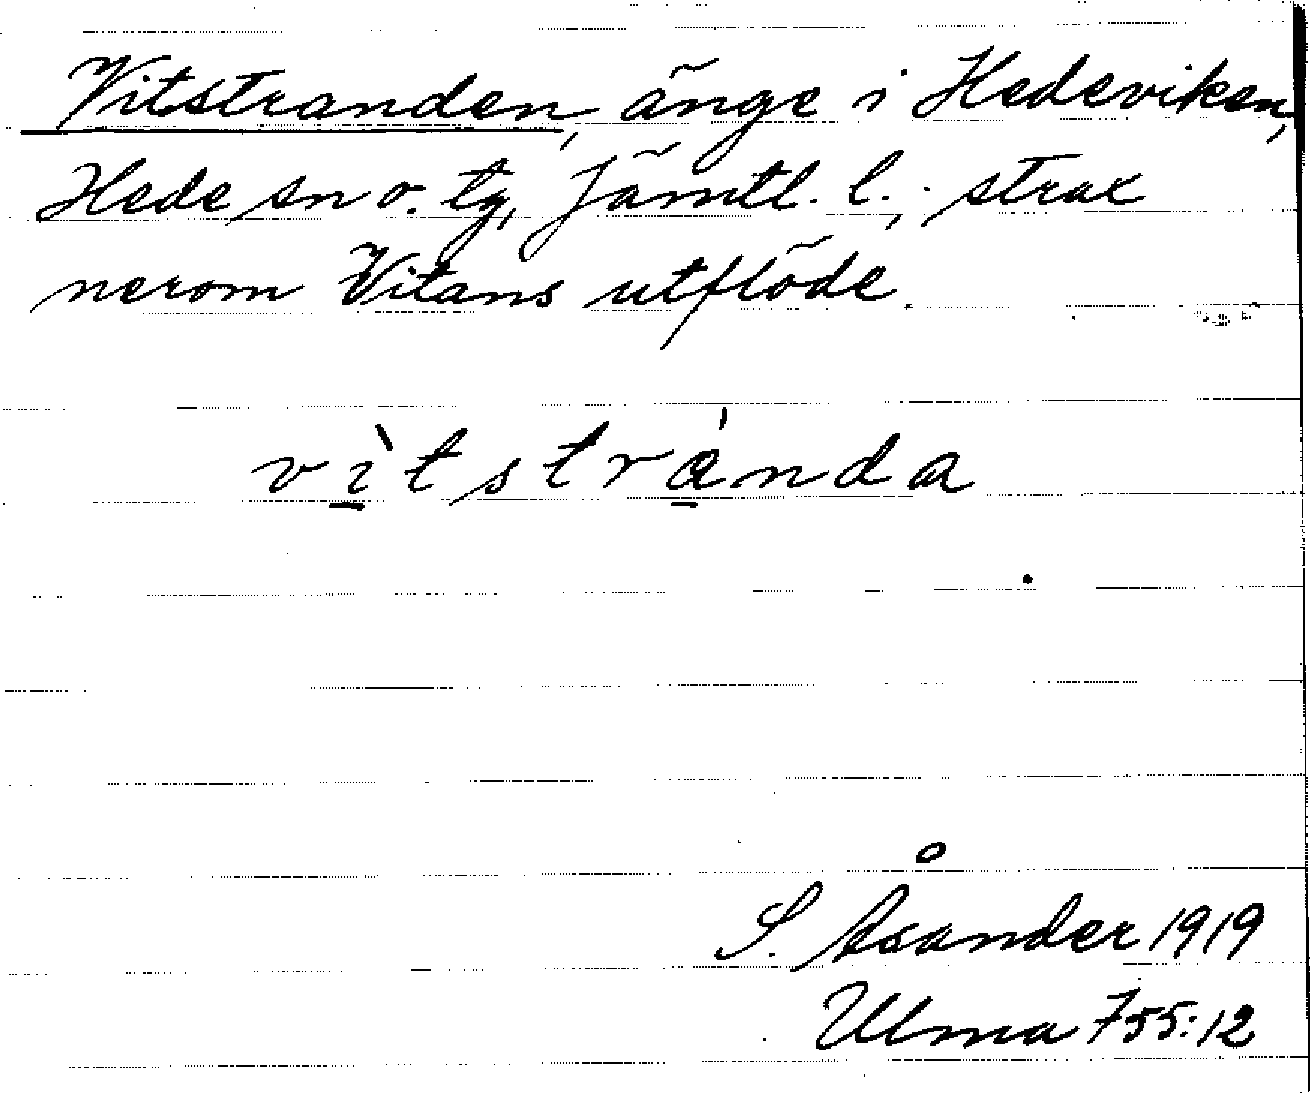 Vitstranden, änge i Hedeviken,
Hede sn o. tg, Jämtl. l.; strax
nerom Vitans utflöde.
vì̱tstrá̱nda
S. Åsander 1919
Ulma 755:12